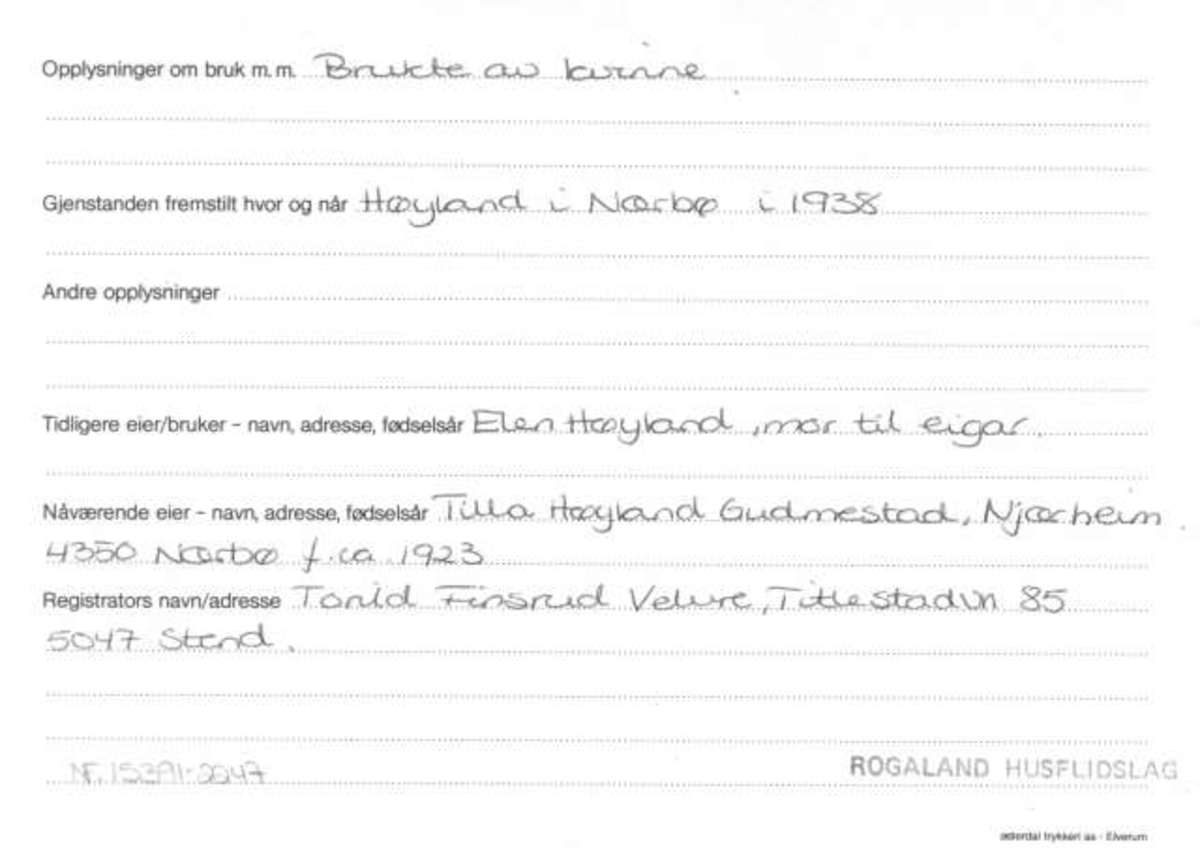 Opplysninger om bruk m.m. Brukte av kvinne
Gjenstanden fremstilt hvor og når Høyland i Nærbø i 1938
Andre opplysninger
Tidligere eier/bruker – navn, adresse, fødselsår Elen Høyland, mor til eigar.
Nåværende eier – navn, adresse, fødselsår Tilla Høyland Gudmestad, Njærheim.
4350 Nærbø f. ca. 1923
Registrators navn/adresse Torild Finsrud Velure, Titlestadvn 85
5047 Stend.
NF. 15391-2047
ROGALAND HUSFLIDSLAG
østerdal trykkeri as - Elverum